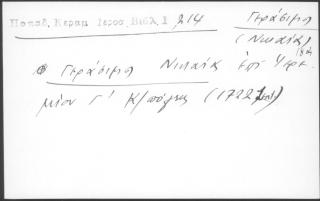 Παπαδ. Κεραμ. Ιεροσ. Βιβλ. 1, 214
Γεράσιμος
(Νικαίας)
18ος
Γεράσιμος Νικαίας ἐπὶ Ἱερε-
μίου Γ' Κ/πόλεως (1722